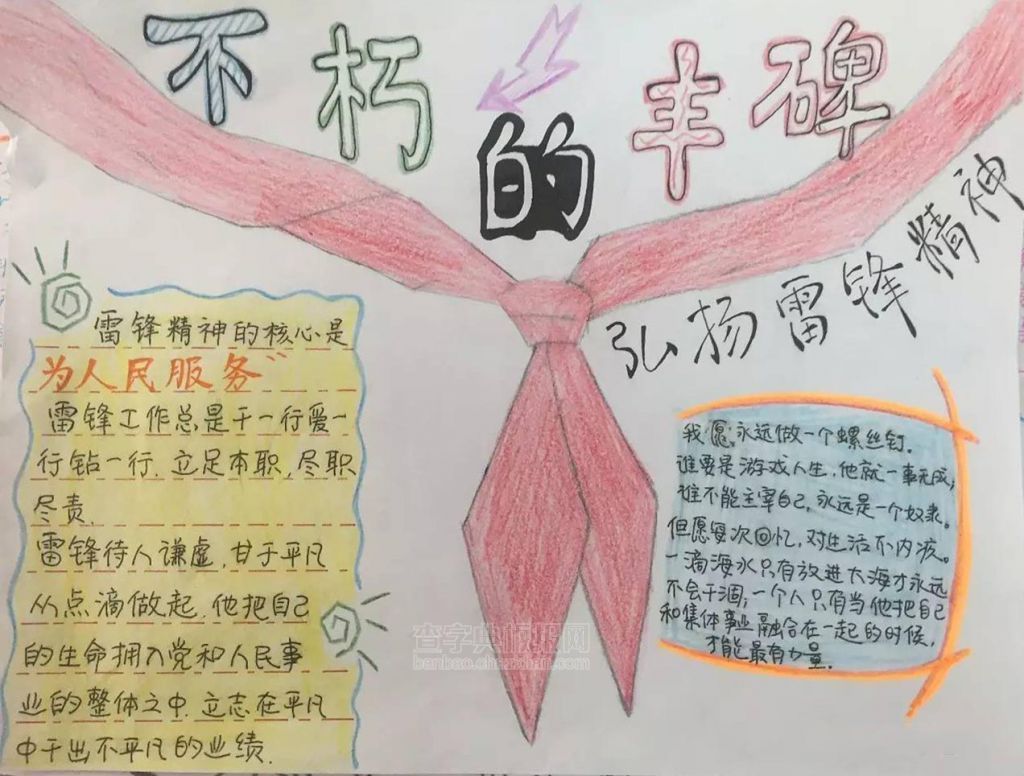 不朽的丰碑
弘扬雷锋精神
雷锋精神的核心是
为人民服务”
雷锋工作总是干一行爱一
行钻一行.立足本职,尽职
尽责.
雷锋待人谦虚,甘于平凡
从点滴做起.他把自己
的生命拥入党和人民事
业的整体之中.立志在平凡
中干出不平凡的业绩.
我愿永远做一个螺丝钉.
谁要是游戏人生,他就一事无成,
谁不能主宰自己,永远是一个奴隶。
但愿每次回忆,对生活不内疚。
一滴海水只有放进大海才永远
不会干涸,一个人只有当他把自己
和集体事业融合在一起的时候,
才能最有力量.
查字典板报网
banbao.chazidian.com